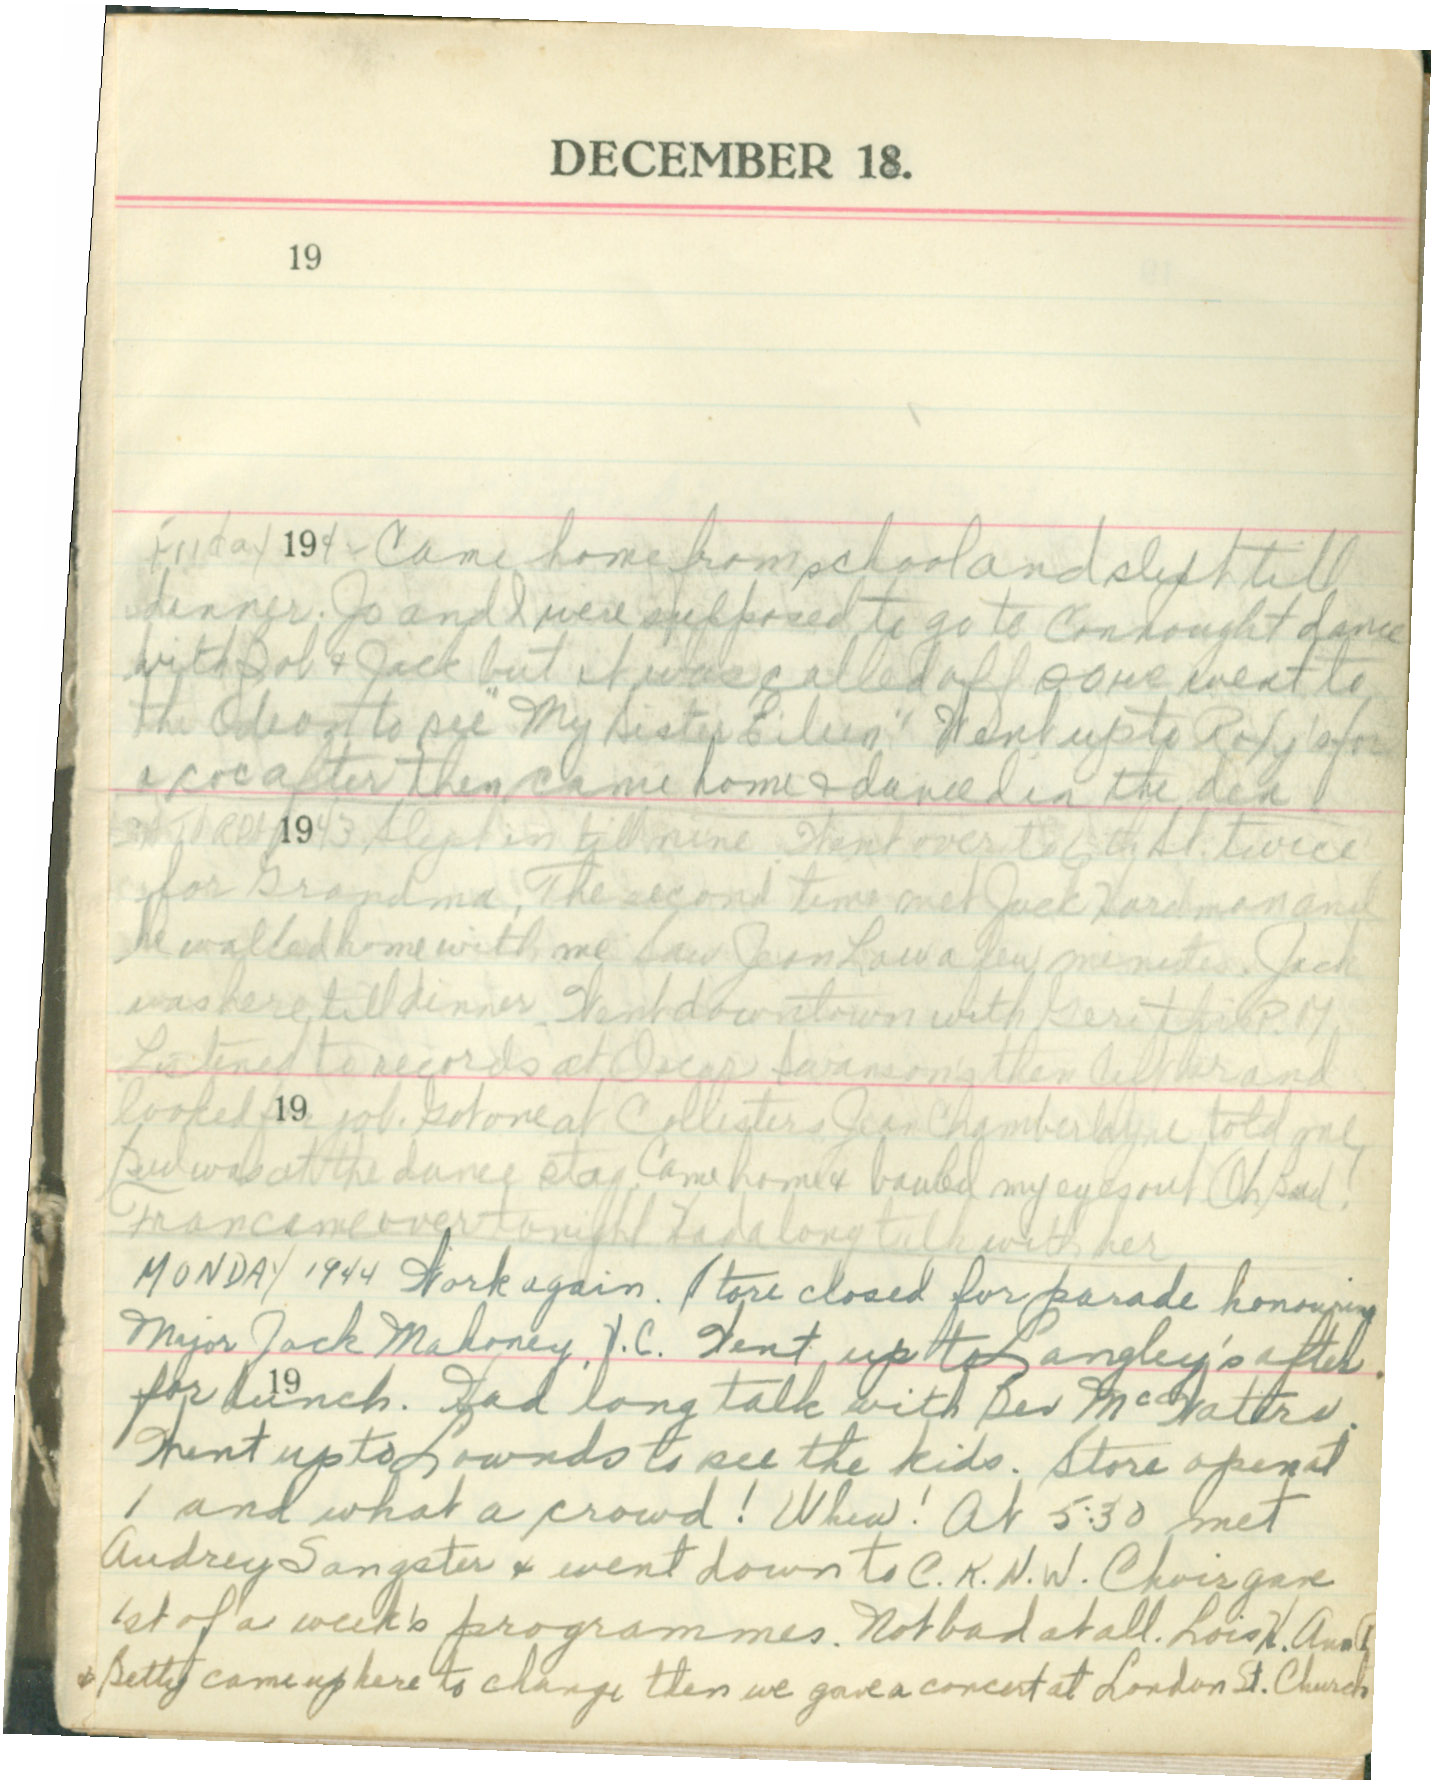 DECEMBER 18.
19
Friday 194 Came home from school and slept till
dinner. Jo and I were supposed to go to Connought dance
with Bob & Jack but it was called off so we went to
the Odeon to see "My Sister Eileen" Went up to Roxy's for
a coc after then came home & danced in the den.
SATURDAY 1943 Slept in till nine. Went over to 6th St. twice
for Grandma. The second time met Jack Hardman and
he walked home with me. Saw Jean Law a few minutes. Jack
was here till dinner. Went downtown with this P.M.
Listened to records at Oscar Swanson's then left her and
19
looked for job. Got one at Collisters Jean Chamberlayne told me
Bud was at the dance stag. Came home & bawled my eyes out Oh, Bud!
Fran came over tonight Had a long talk with her
MONDAY 1944 Work again. Store closed for parade honouring
Major Jack Mahoney, V.C. Went up to Langley's after
19
for lunch. Had long talk with Bev McWatters.
Went up to Lownds to see the kids. Store open at
1 and what a crowd! Whew! At 5:30 met
Audrey Sangster & went down to C.K.N.W. Choir gave
1st of a week's programmes. Not bad at all. Lois H. Ann
& Betty came up here to change then we gave a concert at London St. Church